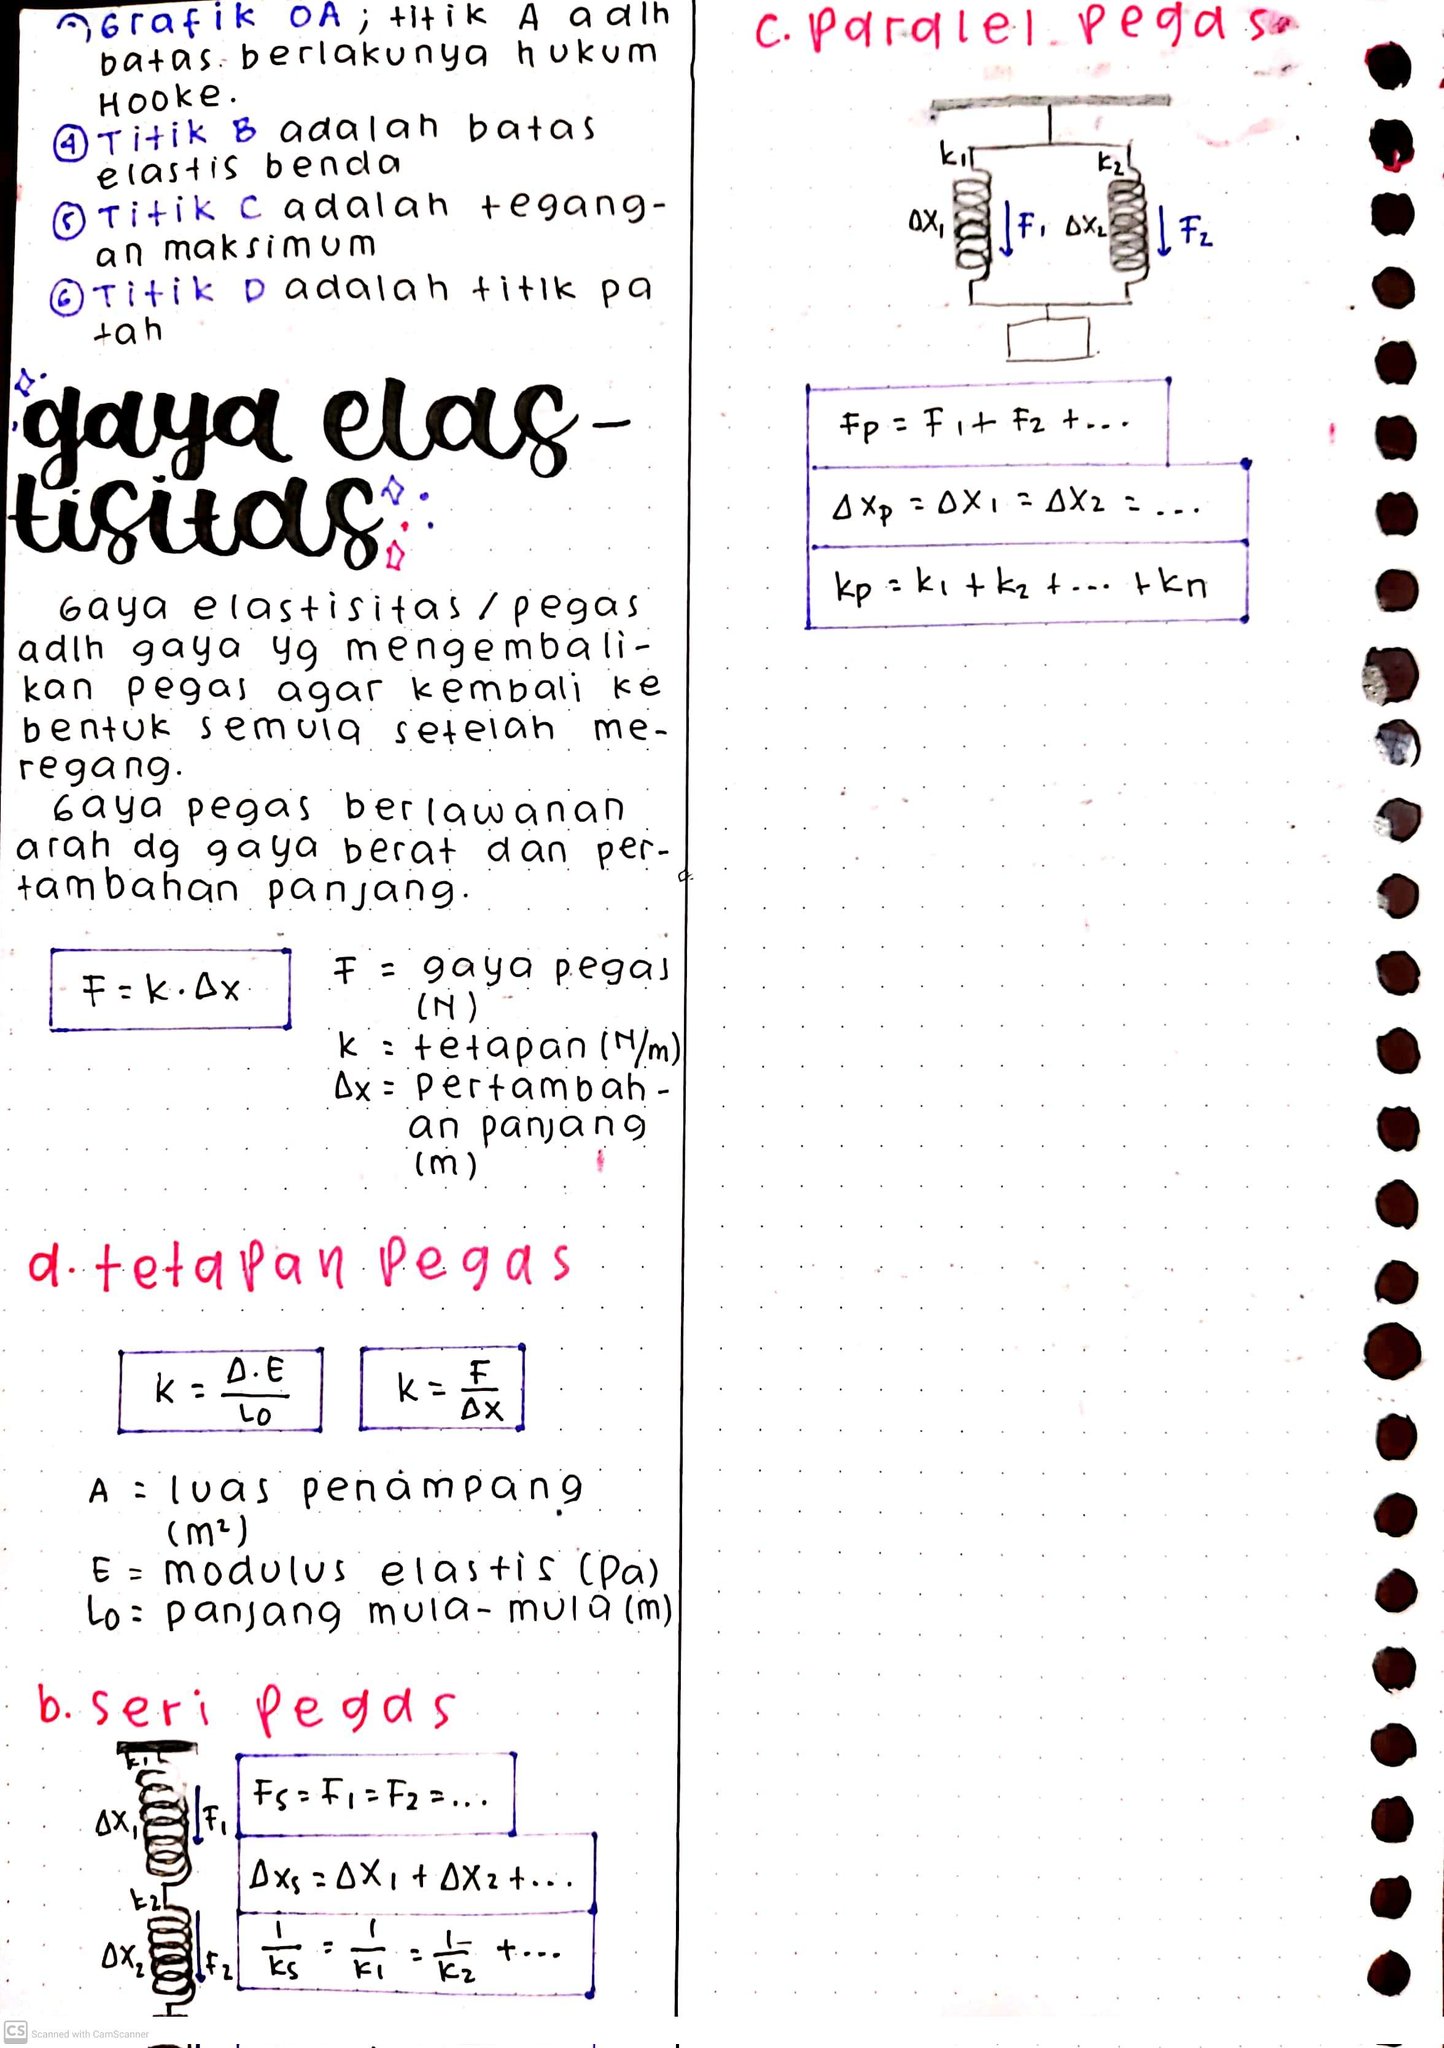 Grafik OA; titik A adlh
batas berlakunya hukum
Hooke.
④ Titik B adalah batas
elastis benda
⑤ Titik C adalah tegang-
an maksimum
⑥ Titik D adalah titik pa
tah
gaya elas-
tisitas
Gaya elastisitas/pegas
adlh gaya yg mengembali-
kan pegas agar kembali ke
bentuk semula setelah me-
regang.
Gaya pegas berlawanan
arah dg gaya berat dan per-
tambahan panjang.
F = k . Δx
F = gaya pegas
(N)
k = tetapan (N/m)
Δx = pertambah-
an panjang
(m)
d. tetapan pegas
k = Δ.E / Lo
k = F / Δx
A = luas penampang
(m²)
E = modulus elastis (Pa)
Lo = panjang mula-mula (m)
b. seri pegas
k1
Δx1
F1
k2
Δx2
F2
Fs = F1 = F2 = ...
Δxs = Δx1 + Δx2 + ...
1/ks = 1/k1 = 1/k2 + ...
c. Paralel pegas
k1
k2
Δx1
F1
Δx2
F2
Fp = F1 + F2 + ...
Δxp = Δx1 = Δx2 = ...
kp = k1 + k2 + ... + kn
CS Scanned with CamScanner